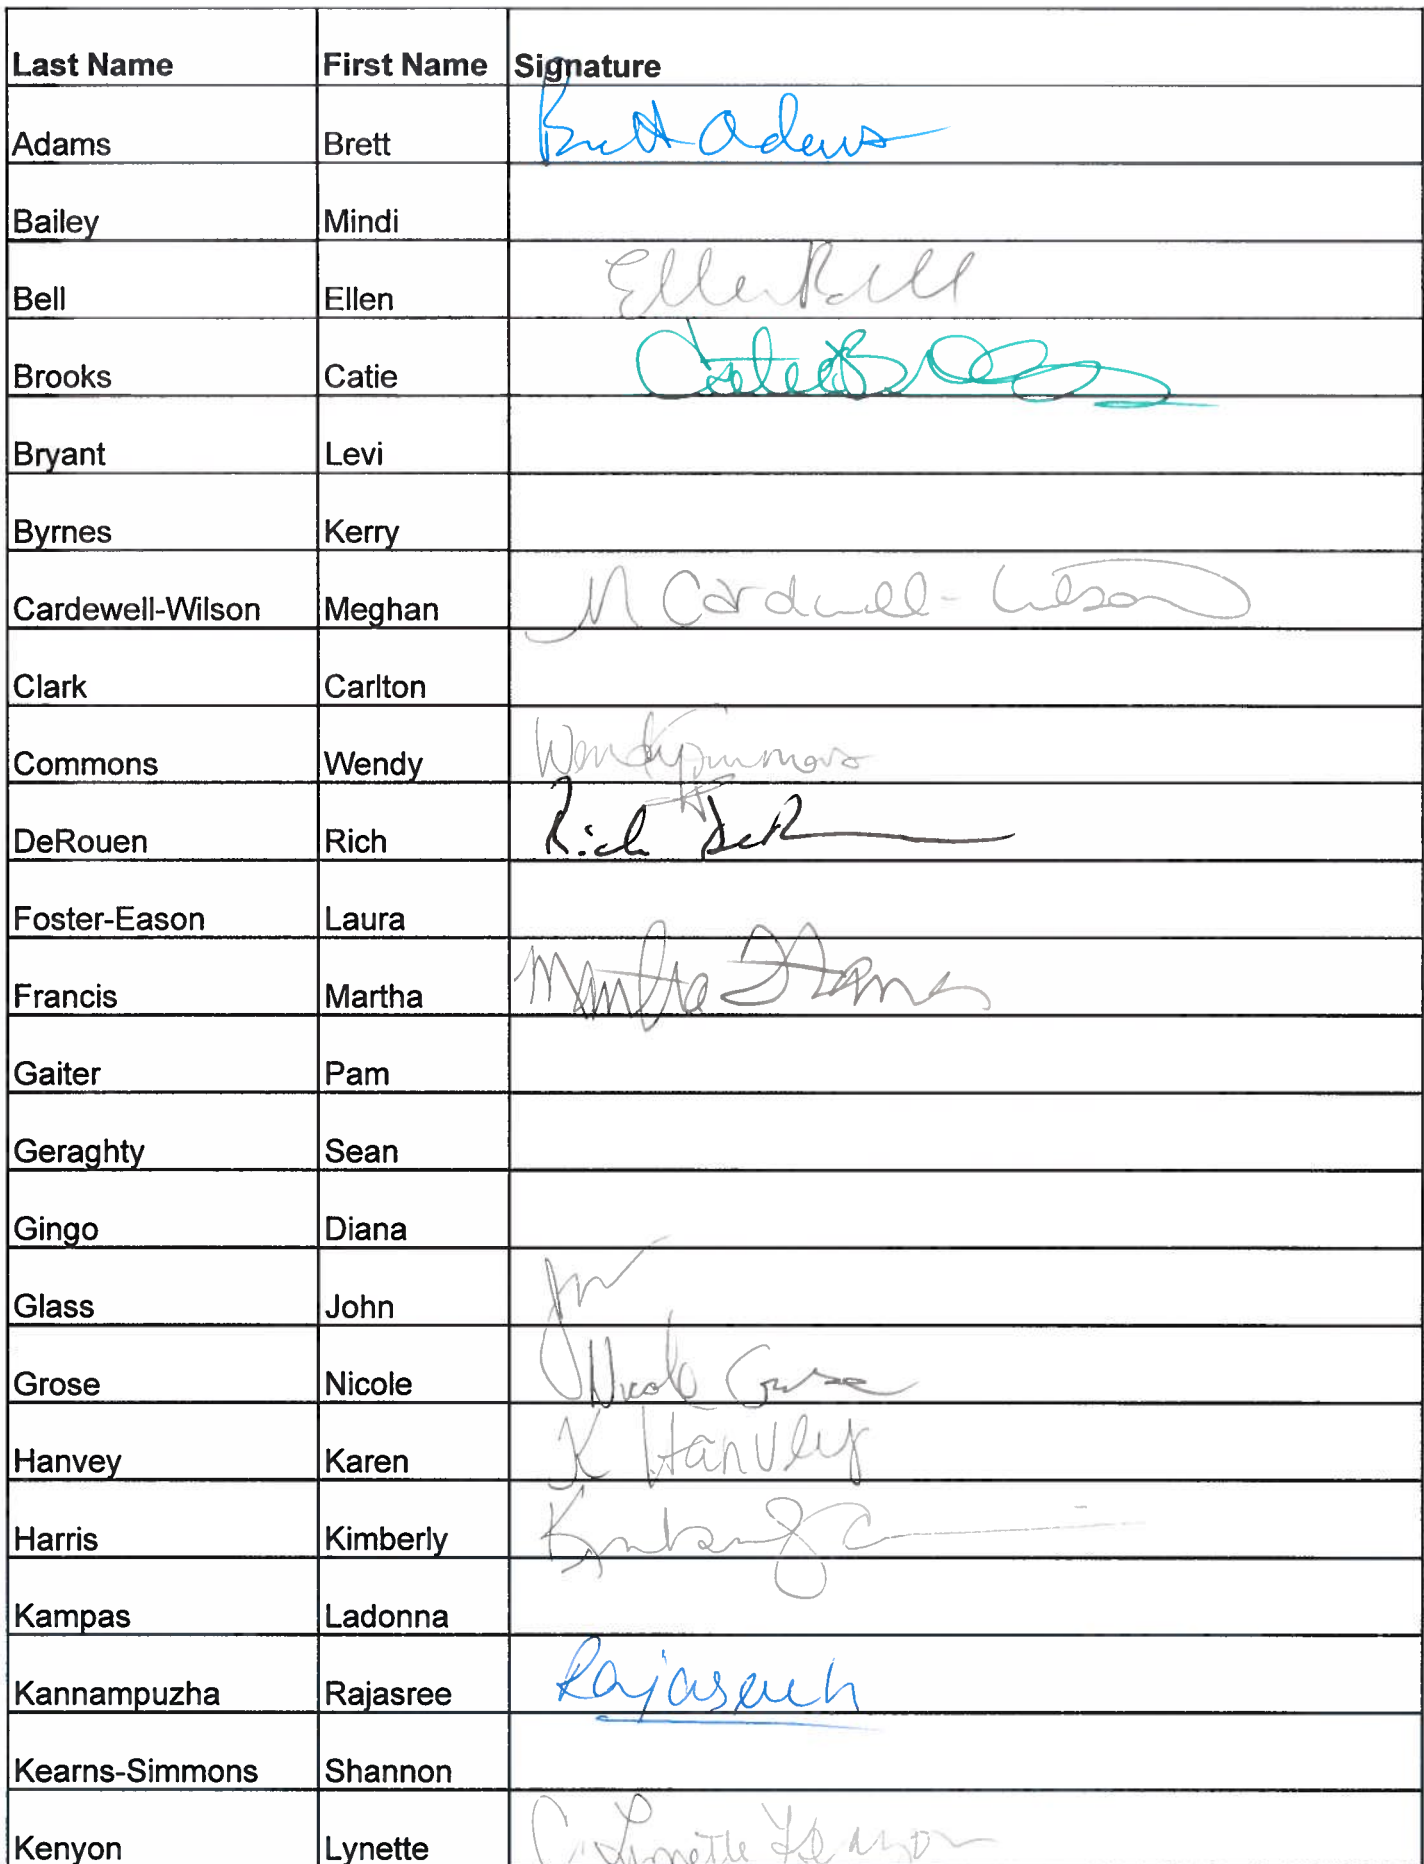 Last Name First Name Signature
Adams Brett Brett Adams
Bailey Mindi
Bell Ellen Ellen Bell
Brooks Catie Catie B
Bryant Levi
Byrnes Kerry
Cardewell-Wilson Meghan M Cardwell-Wilson
Clark Carlton
Commons Wendy Wendy Commons
DeRouen Rich Rich DeR
Foster-Eason Laura
Francis Martha Martha Francis
Gaiter Pam
Geraghty Sean
Gingo Diana
Glass John
Grose Nicole Nicole Grose
Hanvey Karen K Hanvey
Harris Kimberly
Kampas Ladonna
Kannampuzha Rajasree Rajasree
Kearns-Simmons Shannon
Kenyon Lynette C. Lynette Kenyon